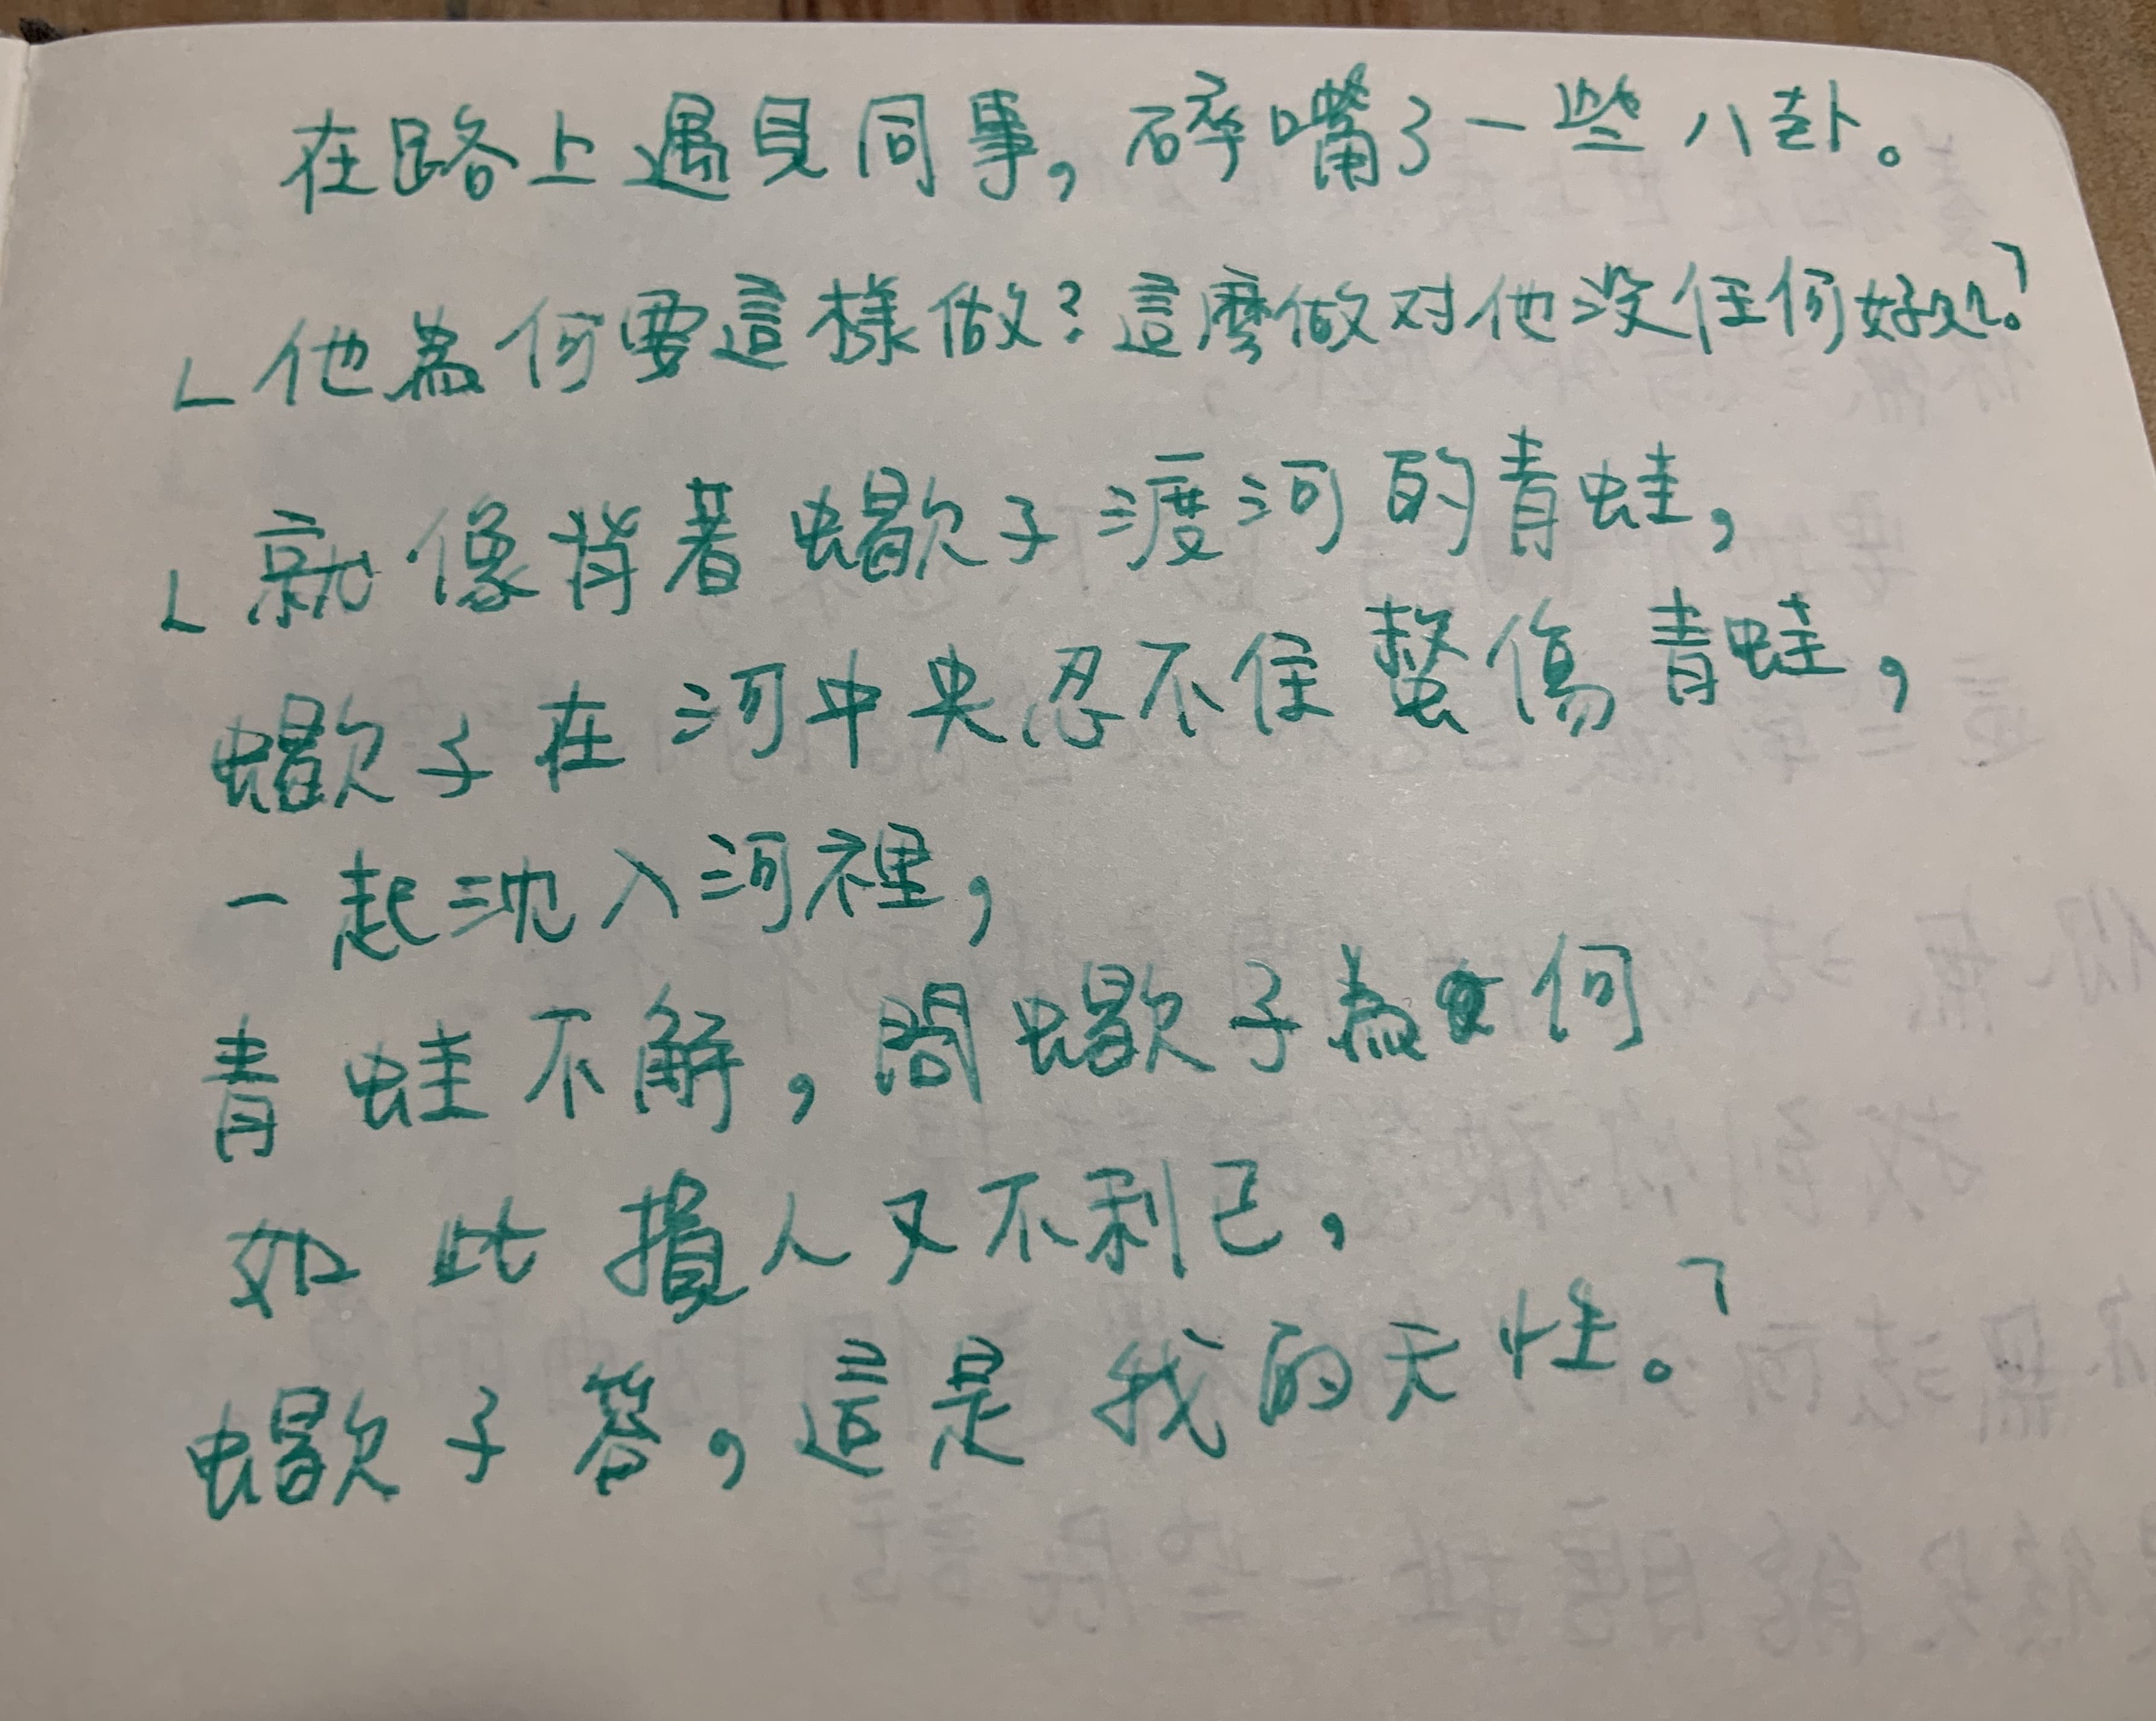 在路上遇見同事，碎嘴了一些八卦。
「他為何要這樣做？這麼做对他没任何好処。」
「就像背著蠍子渡河的青蛙，
蠍子在河中央忍不住螫傷青蛙，
一起沈入河裡，
青蛙不解，問蠍子為何
如此損人又不利己，
蠍子答，這是我的天性。」